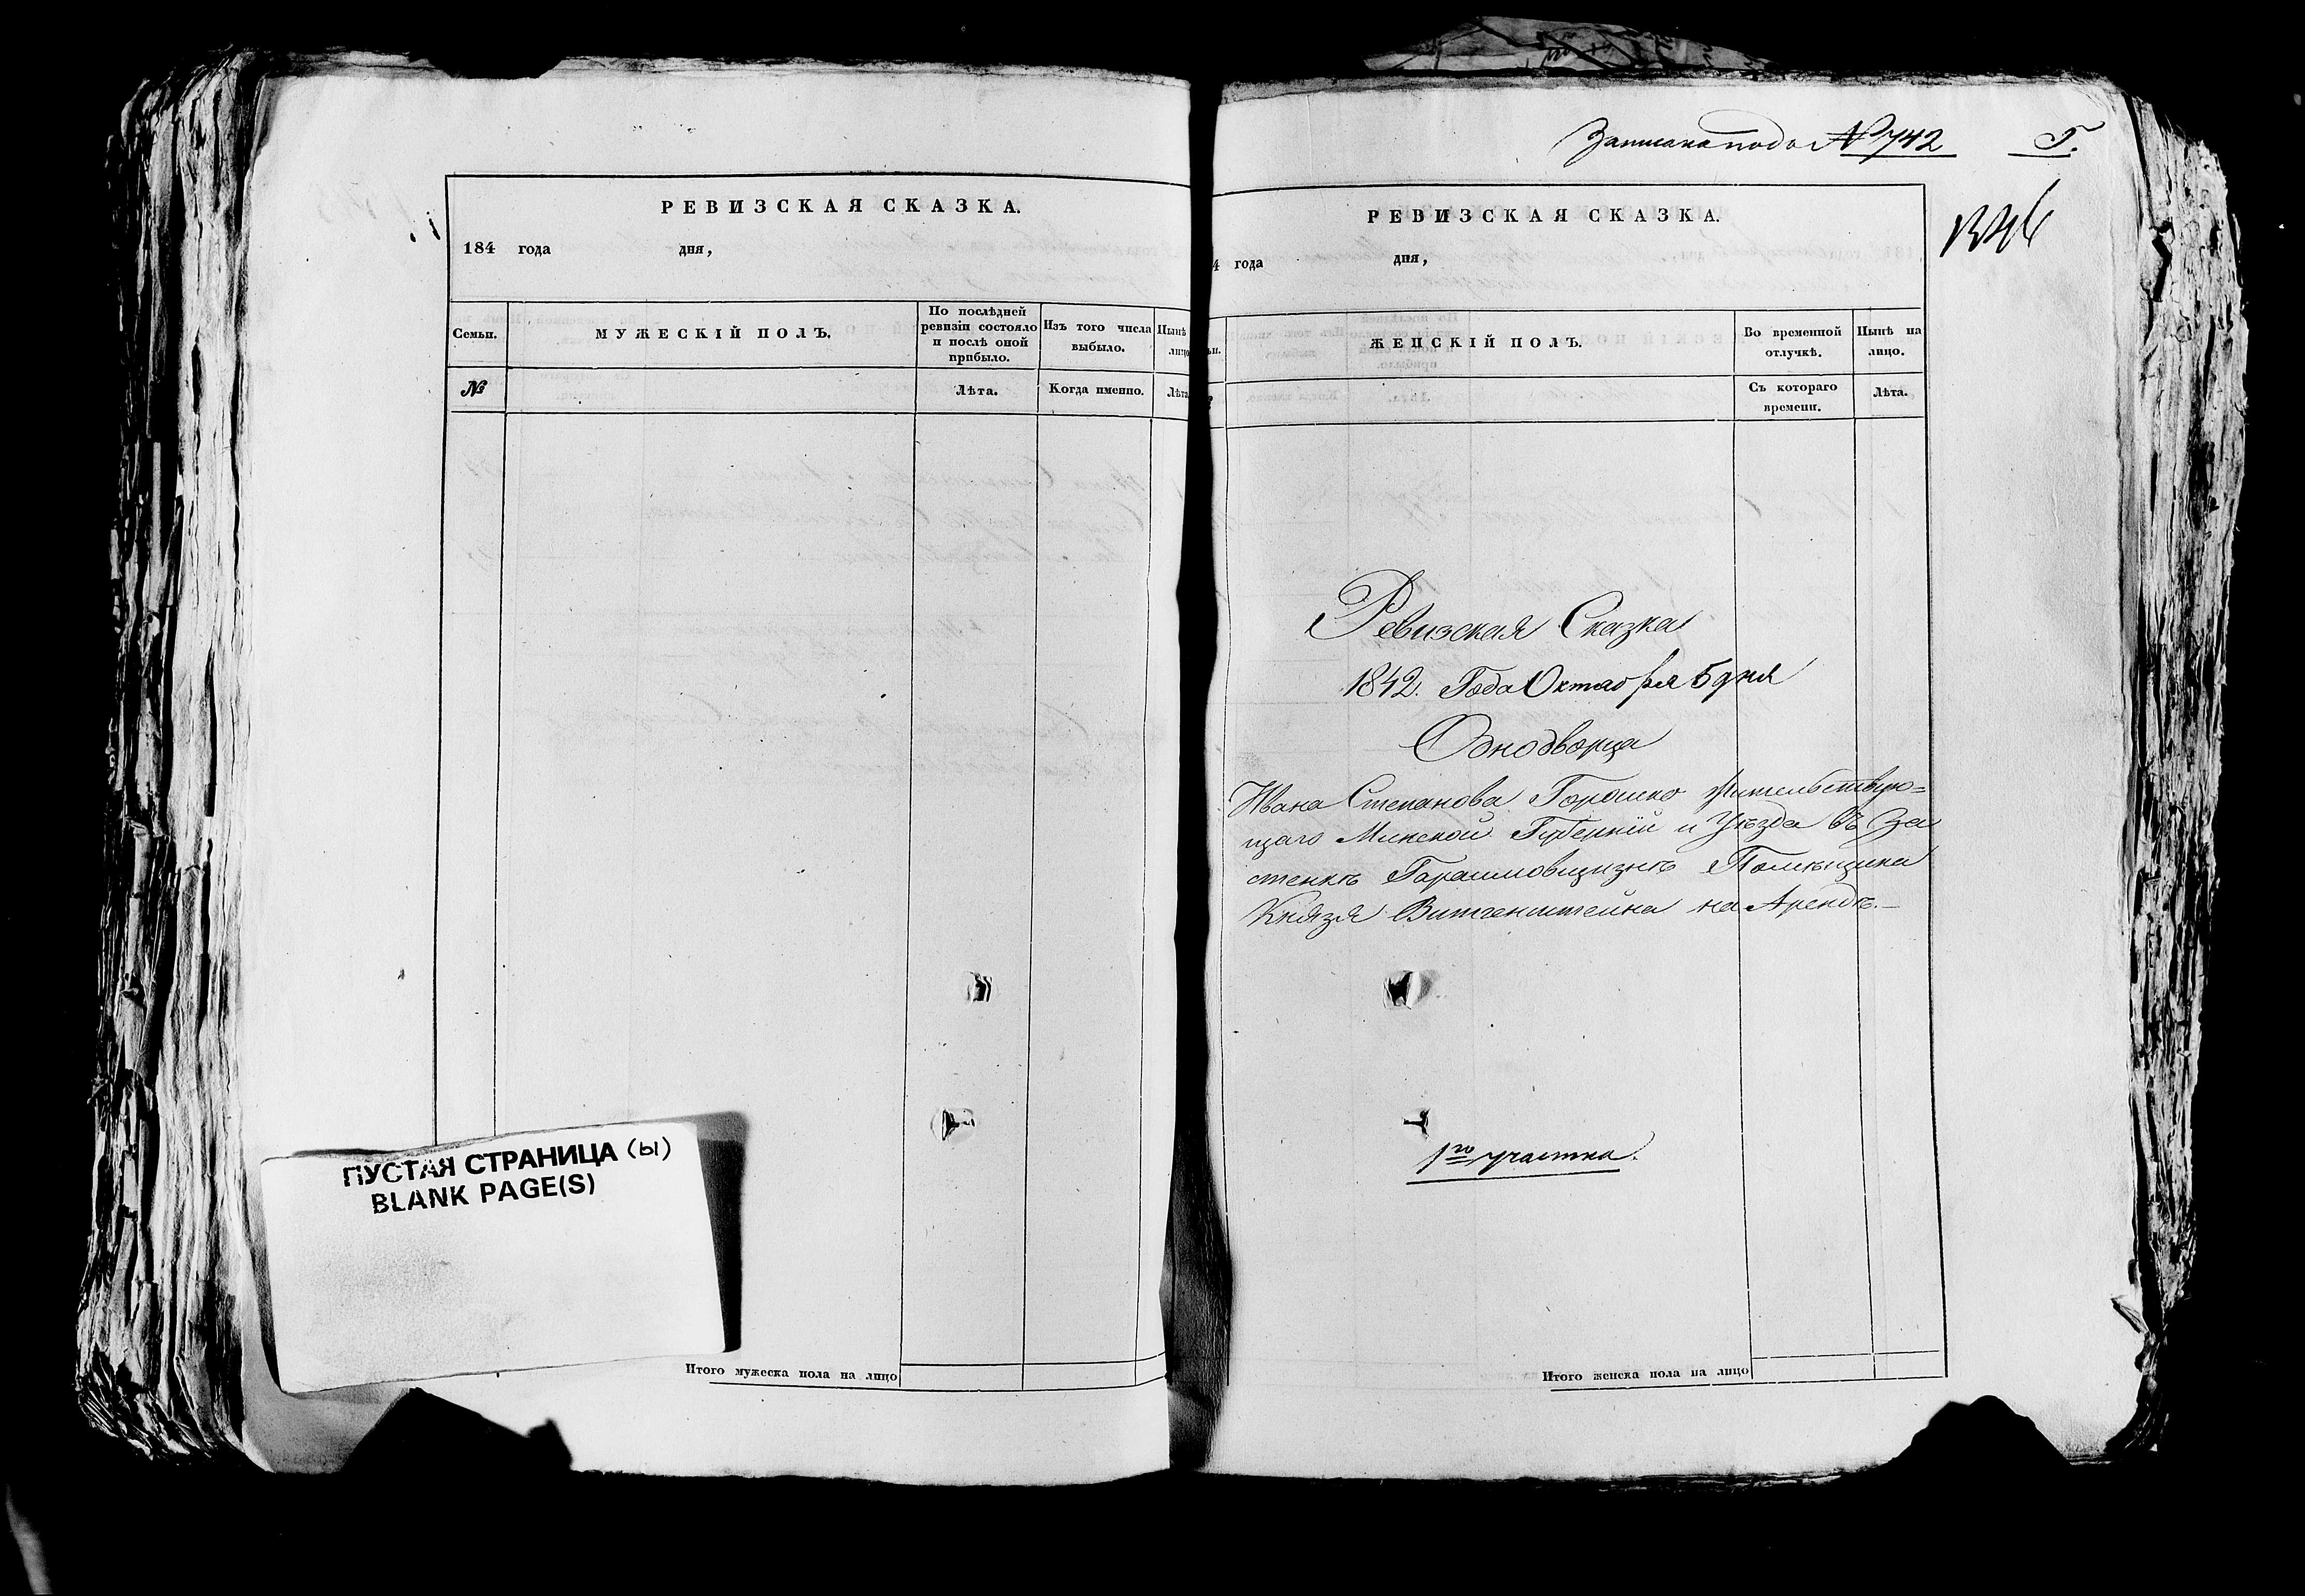 РЕВИЗСКАЯ СКАЗКА.
184 года дня,
Семьи.
МУЖЕСКІЙ ПОЛЪ.
По послѣдней
ревизіи состояло
и послѣ оной
прибыло.
Изъ того числа
выбыло.
Нынѣ
лицо
№
Лѣта.
Когда именно.
Лѣта
ПУСТАЯ СТРАНИЦА (ы)
BLANK PAGE(S)
Итого мужеска пола на лицо
Записана подъ № 742
Г.
РЕВИЗСКАЯ СКАЗКА.
4 года дня,
ЖЕНСКІЙ ПОЛЪ.
Во временной
отлучкѣ.
Нынѣ на
лицо.
Съ котораго
времени.
Лѣта.
Ревизская Сказка
1842. Года Октября 5 дня
Однодворца
Ивана Степанова Горошко жительствую=
щаго Минской Губерніи и Уѣзда въ За
стенкѣ Гараимовщизнѣ Помѣщика
Князя Витгенштейна на Арендѣ.—
1го участка.
Итого женска пола на лицо